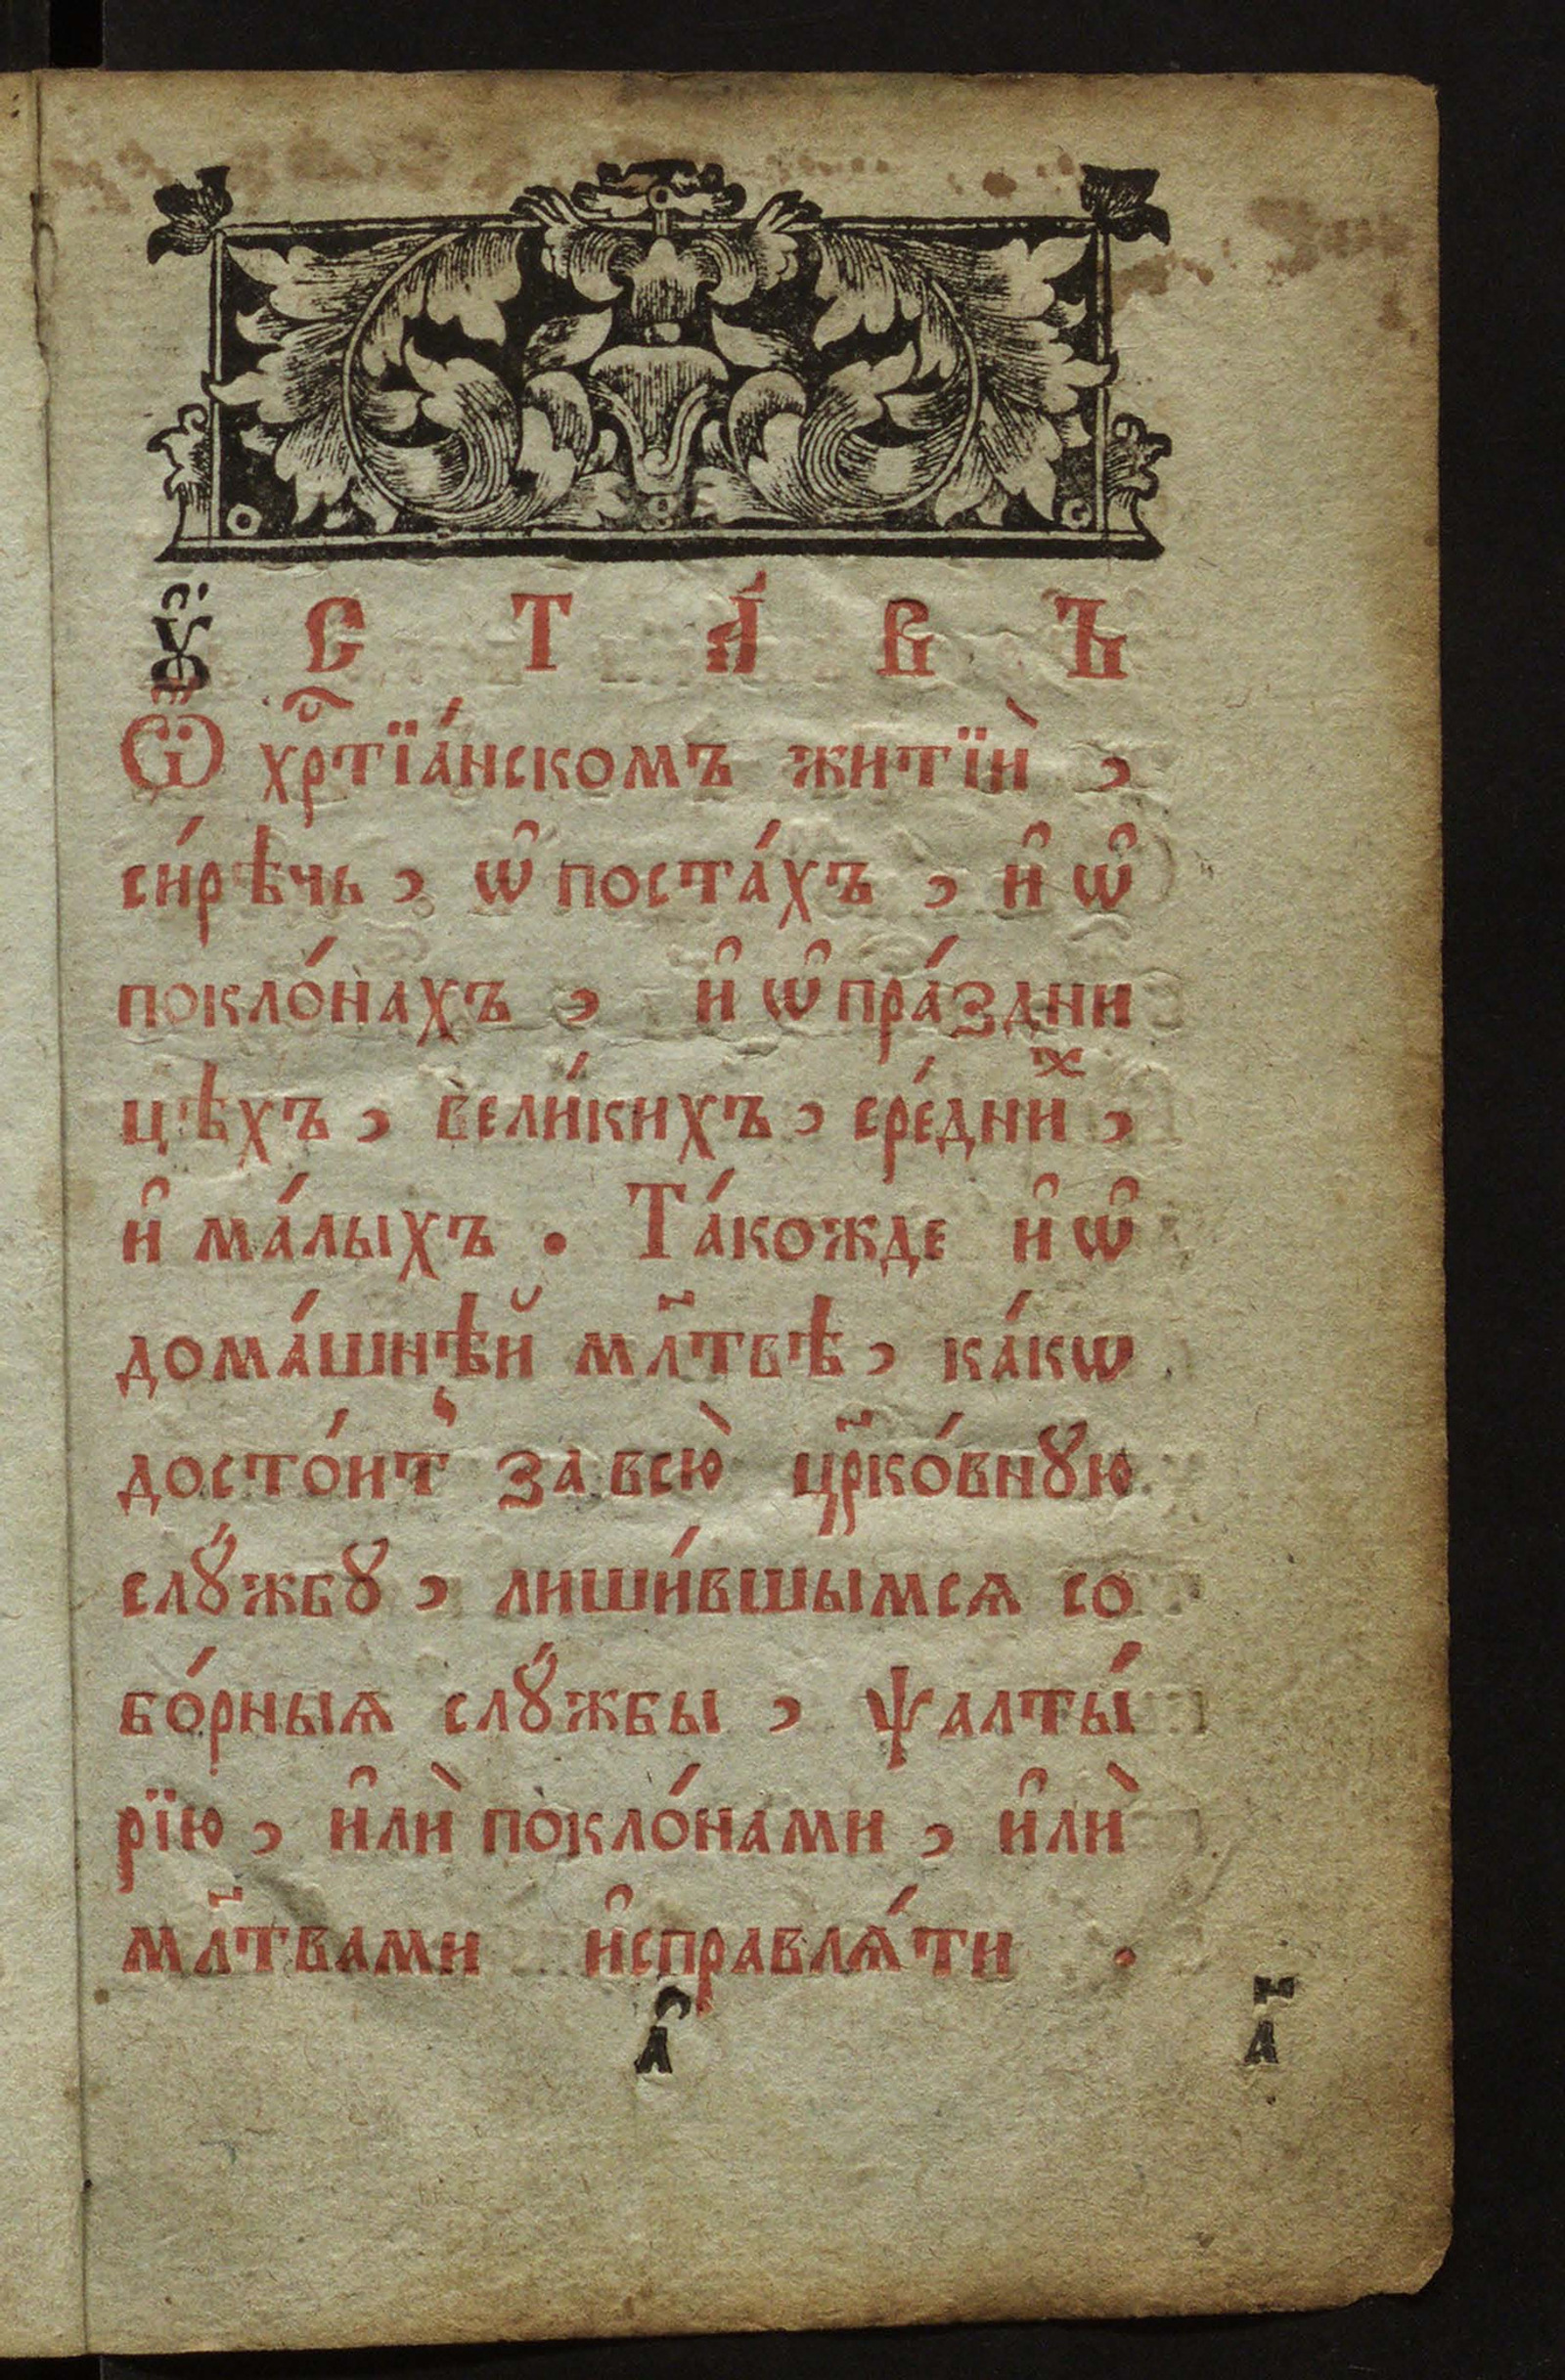 Ꙋ҆СТА́ВЪ
Ѽ хрⷭ҇тїа́нскомъ житїѝ ,
си́рѣчь , ѡ҆ поста́хъ , и҆ ѡ҆
покло́нахъ , и҆ ѡ҆ пра́здни
цѣхъ , вели́кихъ , сре́дниⷯ ,
и҆ ма́лыхъ . Та́кожде и҆ ѡ҆
дома́шнѣй мл҃твѣ , ка́кѡ
досто́ит̾ за всю̀ цр҃ко́внꙋю
слꙋ́жбꙋ , лиши́вшымсѧ со
бо́рныѧ слꙋ́жбы , ѱалты́
рїю , и҆лѝ покло́нами , и҆лѝ
мл҃твами и҆справлѧ́ти .
а҆ а҃